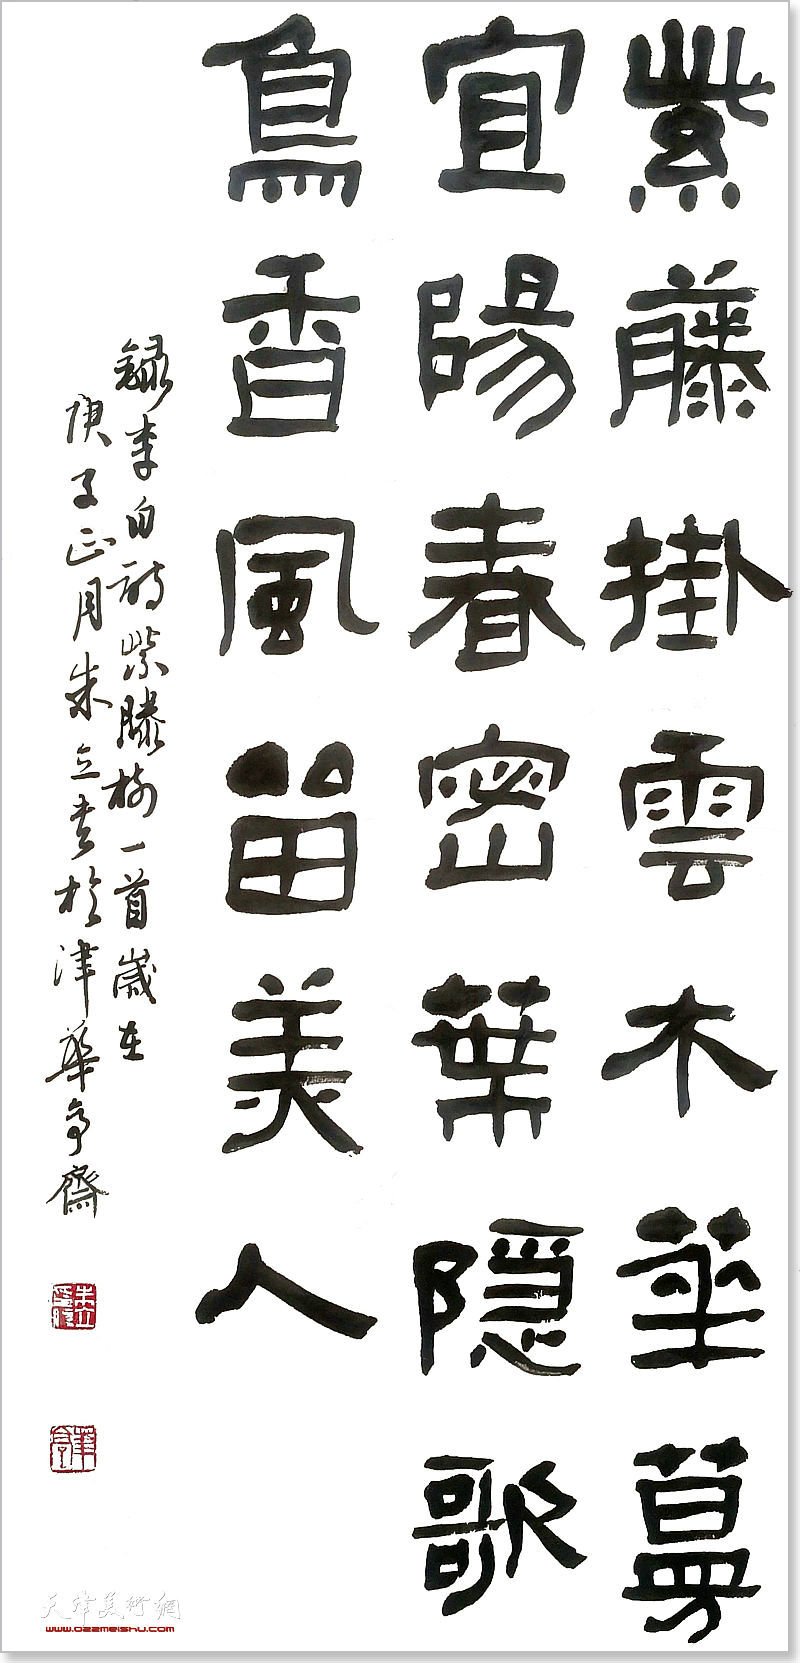 紫藤掛雲木華蔓
宜陽春密葉隱歌
鳥香風留美人
録李白詩紫藤樹一首歲在
庚子正月朱立书於津華亭齋
天津美術網
www.022meishu.com